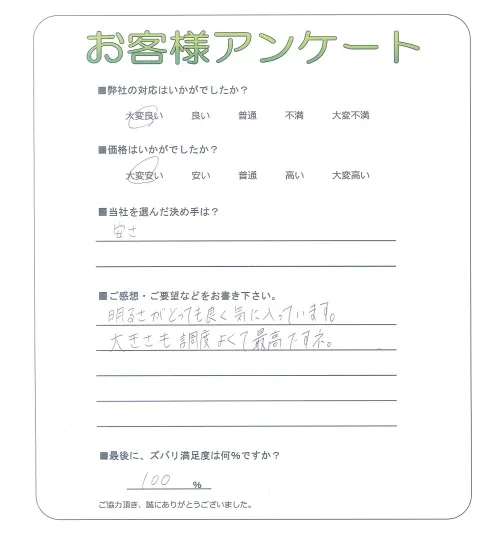 お客様アンケート
■弊社の対応はいかがでしたか？
大変良い 良い 普通 不満 大変不満
■価格はいかがでしたか？
大変安い 安い 普通 高い 大変高い
■当社を選んだ決め手は？
安さ
■ご感想・ご要望などをお書き下さい。
明るさがとっても良く気に入っています。
大きさも調度よくて最高ですネ。
■最後に、ズバリ満足度は何％ですか？
100 ％
ご協力頂き、誠にありがとうございました。